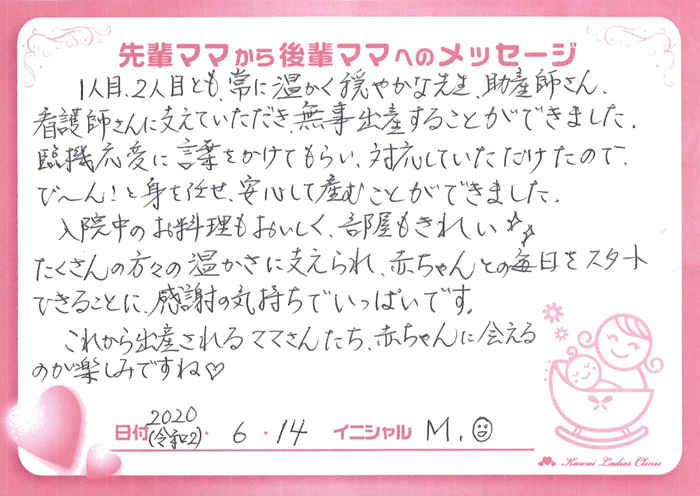 先輩ママから後輩ママへのメッセージ
1人目、2人目とも、常に温かく穏やかな先生、助産師さん、
看護師さんに支えていただき、無事出産することができました。
臨機応変に言葉をかけてもらい、対応していただけたので、
で〜ん!と身を任せ、安心して産むことができました。
入院中のお料理もおいしく、部屋もきれい☆☆
たくさんの方々の温かさに支えられ、赤ちゃんとの毎日をスタート
できることに、感謝の気持ちでいっぱいです。
これから出産されるママさんたち、赤ちゃんに会える
のが楽しみですね♡
日付 2020(令和2)・6・14 イニシャル M.☺
Kawai Ladies Clinic